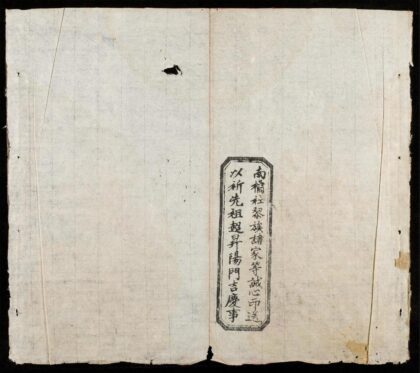 南橋社黎族諸家等誠心印送
以祈先祖超昇陽門吉慶事